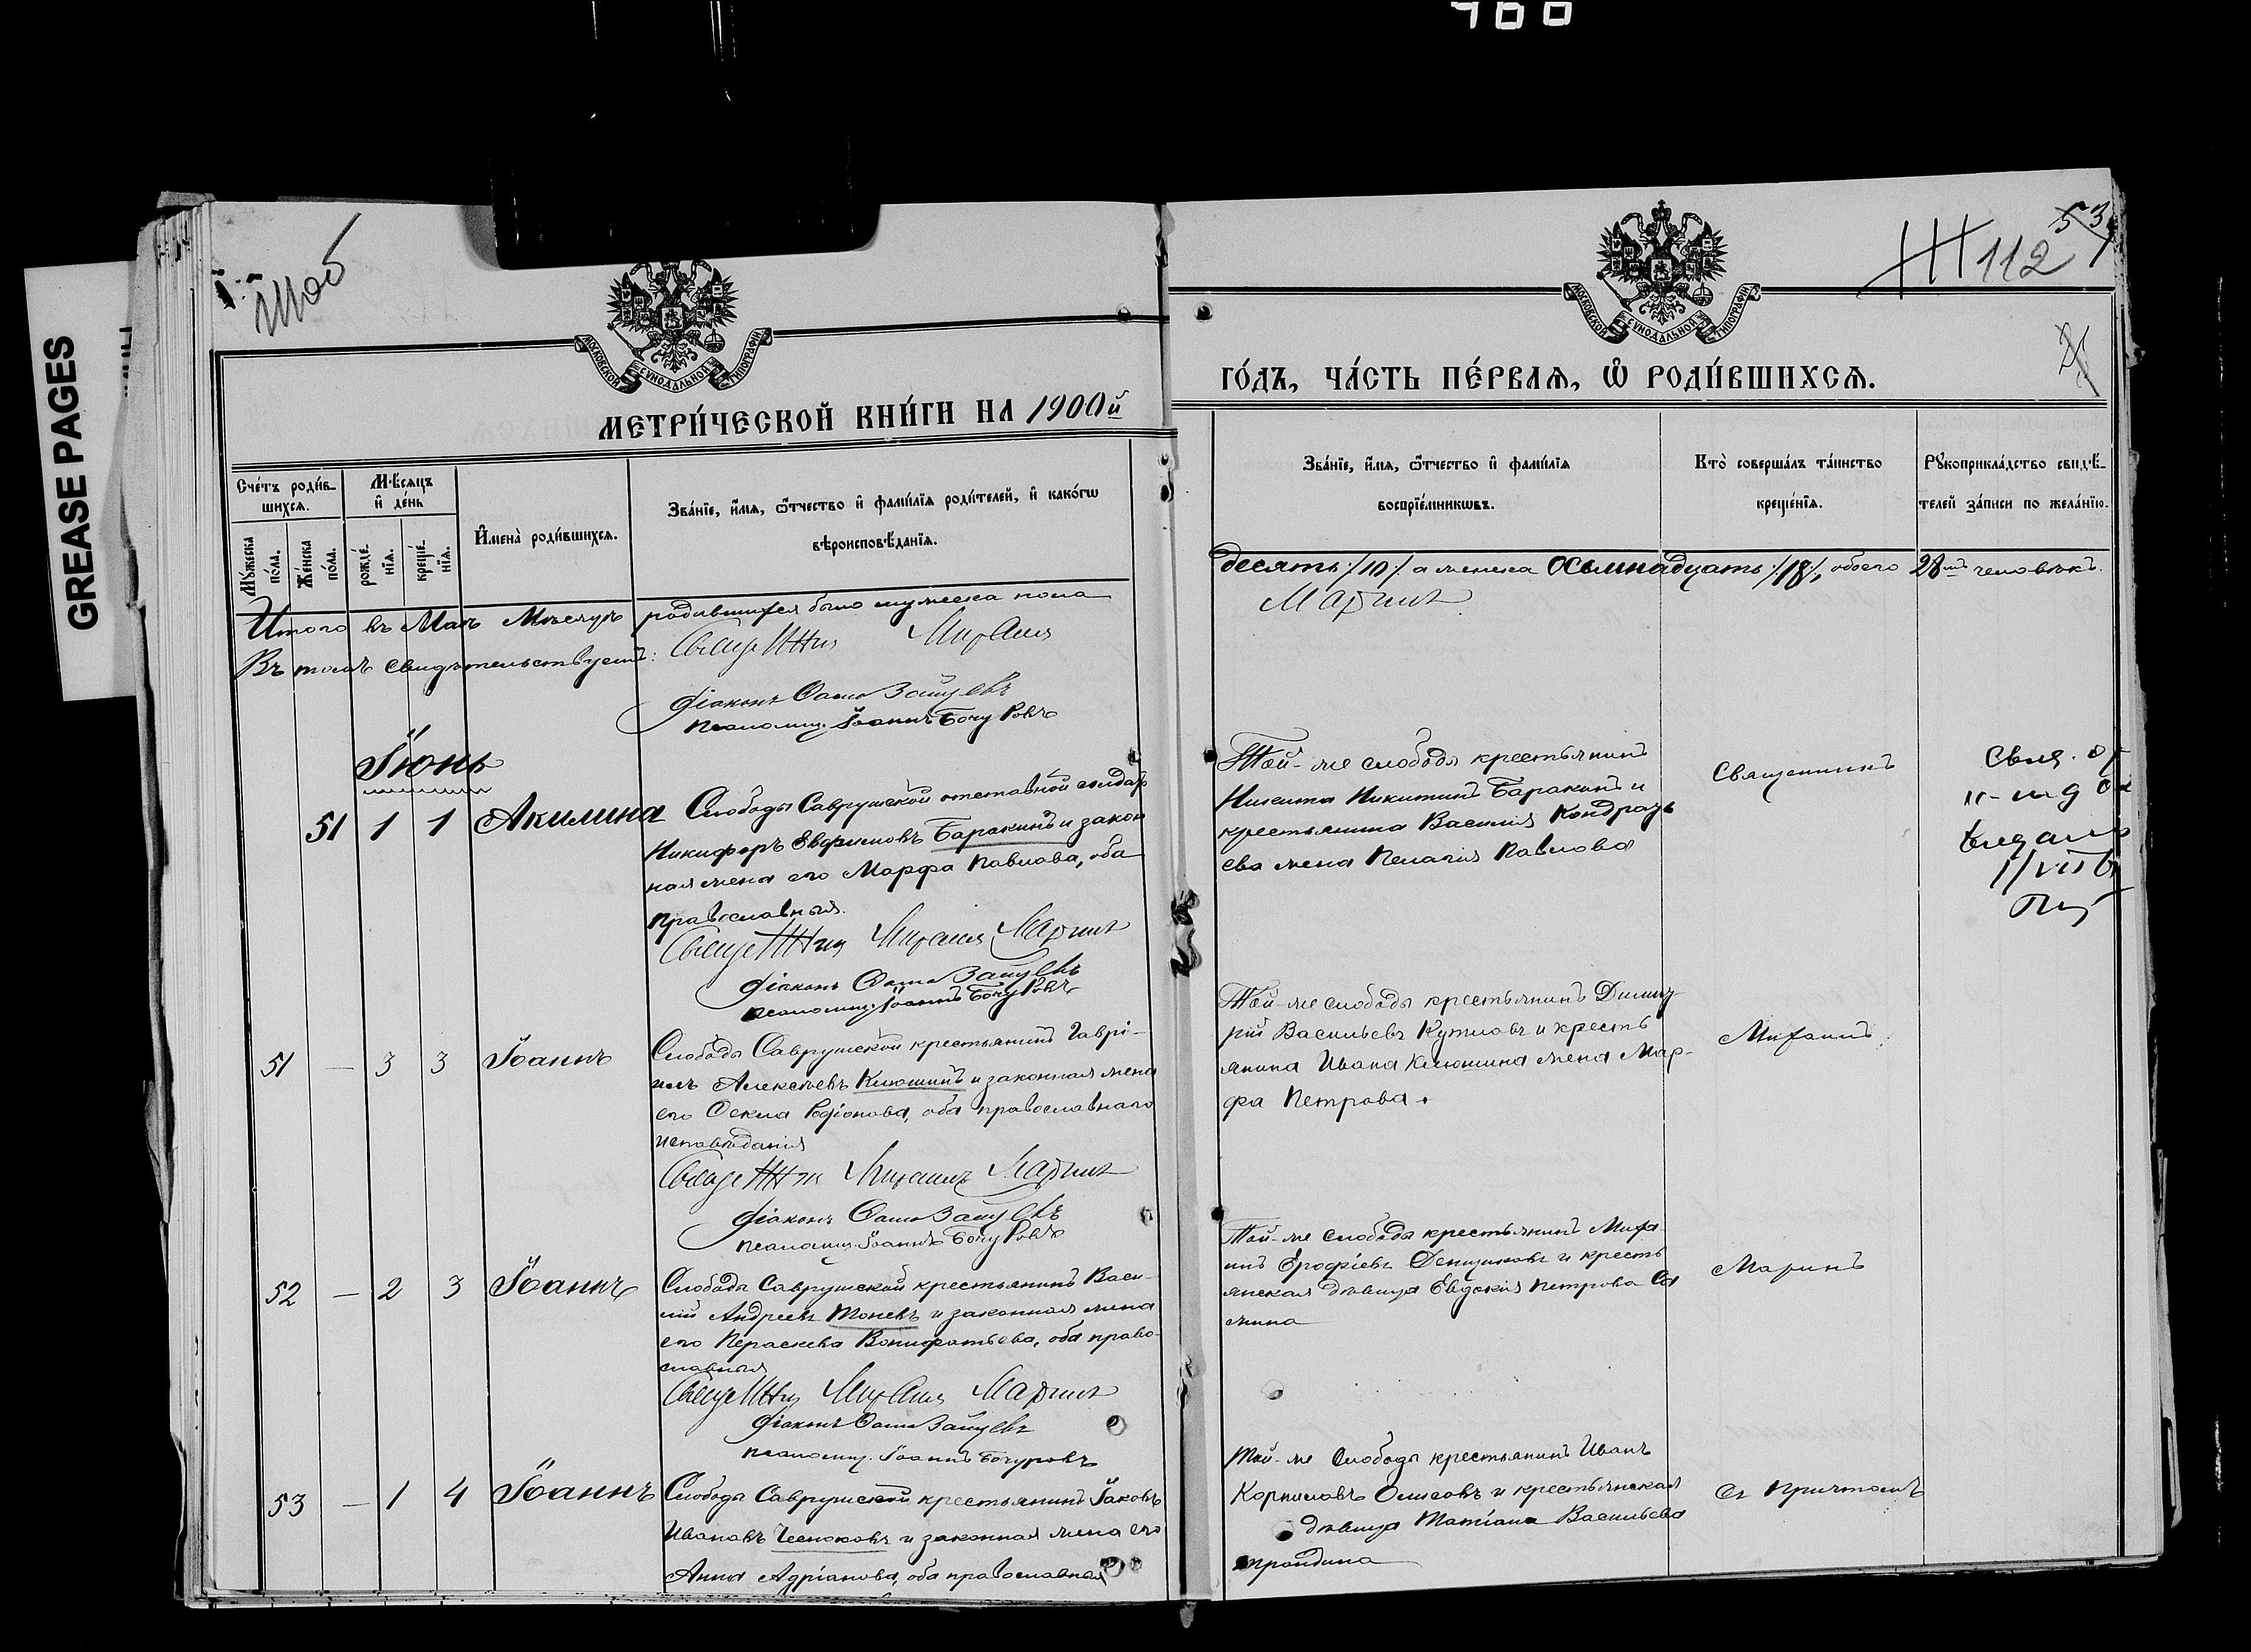 GREASE PAGES
МОСКОВСКОЙ СУНОДАЛЬНОЙ ТИПОГРАФІИ
МЕТРИ́ЧЕСКОЙ КНИ́ГИ НА 1900й
Сче́тъ роди́в-
шихся.
Мѣ́сяцъ
и҆ де́нь
Мꙋ́жеска
по́ла.
Же́нска
по́ла.
рожде́-
нїя.
креще́-
нїя.
И҆мена̀ роди́вшихся.
Зва́нїе, и҆́мя, ѻ҆́тчество и҆ фами́лїя роди́телей, и҆ како́гѡ
вѣроисповѣ́данїя.
Итого въ Маѣ Мѣсяцѣ родившихся было мужеска пола
Въ томъ свидѣтельствуетъ:
діаконъ Зайцевъ
псаломщ. Іоаннъ Бочуровъ
Іюнь
51 1 1 Акилина Слободы Саврушской отставной солдатъ
Никифоръ Евфимовъ Баракинъ и закон
ная жена его Марфа Павлова, оба
православныя.
діаконъ Зайцевъ
псаломщ. Іоаннъ Бочуровъ
51 — 3 3 Іоаннъ Слободы Саврушской крестьянинъ Гаврі-
илъ Алексѣевъ Клюшинъ и законная жена
его Ѳекла Родіонова, оба православнаго
исповѣданія
діаконъ Зайцевъ
псаломщ. Іоаннъ Бочуровъ
52 — 2 3 Іоаннъ Слободы Саврушской крестьянинъ Васи-
лій Андреевъ Тоневъ и законная жена
его Параскева Вонифатьева, оба право-
славныя
діаконъ Зайцевъ
псаломщ. Іоаннъ Бочуровъ
53 — 1 4 Іоаннъ Слободы Саврушской крестьянинъ Іаковъ
Ивановъ Чесноковъ и законная жена его
Анна Адріанова, оба православныя
112
53
МОСКОВСКОЙ СУНОДАЛЬНОЙ ТИПОГРАФІИ
ГО́ДЪ, ЧА́СТЬ ПЕ́РВАЯ, Ѡ҆ РОДИ́ВШИХСЯ.
Зва́нїе, и҆́мя, ѻ҆́тчество и҆ фами́лїя
воспрїе́мникѡвъ.
Кто̀ соверша́лъ та́инство
креще́нїя.
Рꙋкоприкла́дство свидѣ́-
телей за́писи по жела́нїю.
десять /10/ а женска осьмнадцать /18/, обоего 28мъ человѣкъ.
Той-же слободы крестьянинъ
Никита Никитинъ Баракинъ и
крестьянина Василія Кондрать
ева жена Пелагія Павлова
Священникъ
Той-же слободы крестьянинъ Димит-
рій Васильевъ и кресть
янина Ивана Клюшина жена Мар-
фа Петрова.
Михаилъ
Той-же слободы крестьянинъ Миха
илъ Ерофіевъ Денщиковъ и кресть
янская дѣвица Евдокія Петрова
Маринъ
Той-же слободы крестьянинъ Иванъ
Корниловъ и крестьянская
дѣвица Татіана Васильева
съ причтомъ